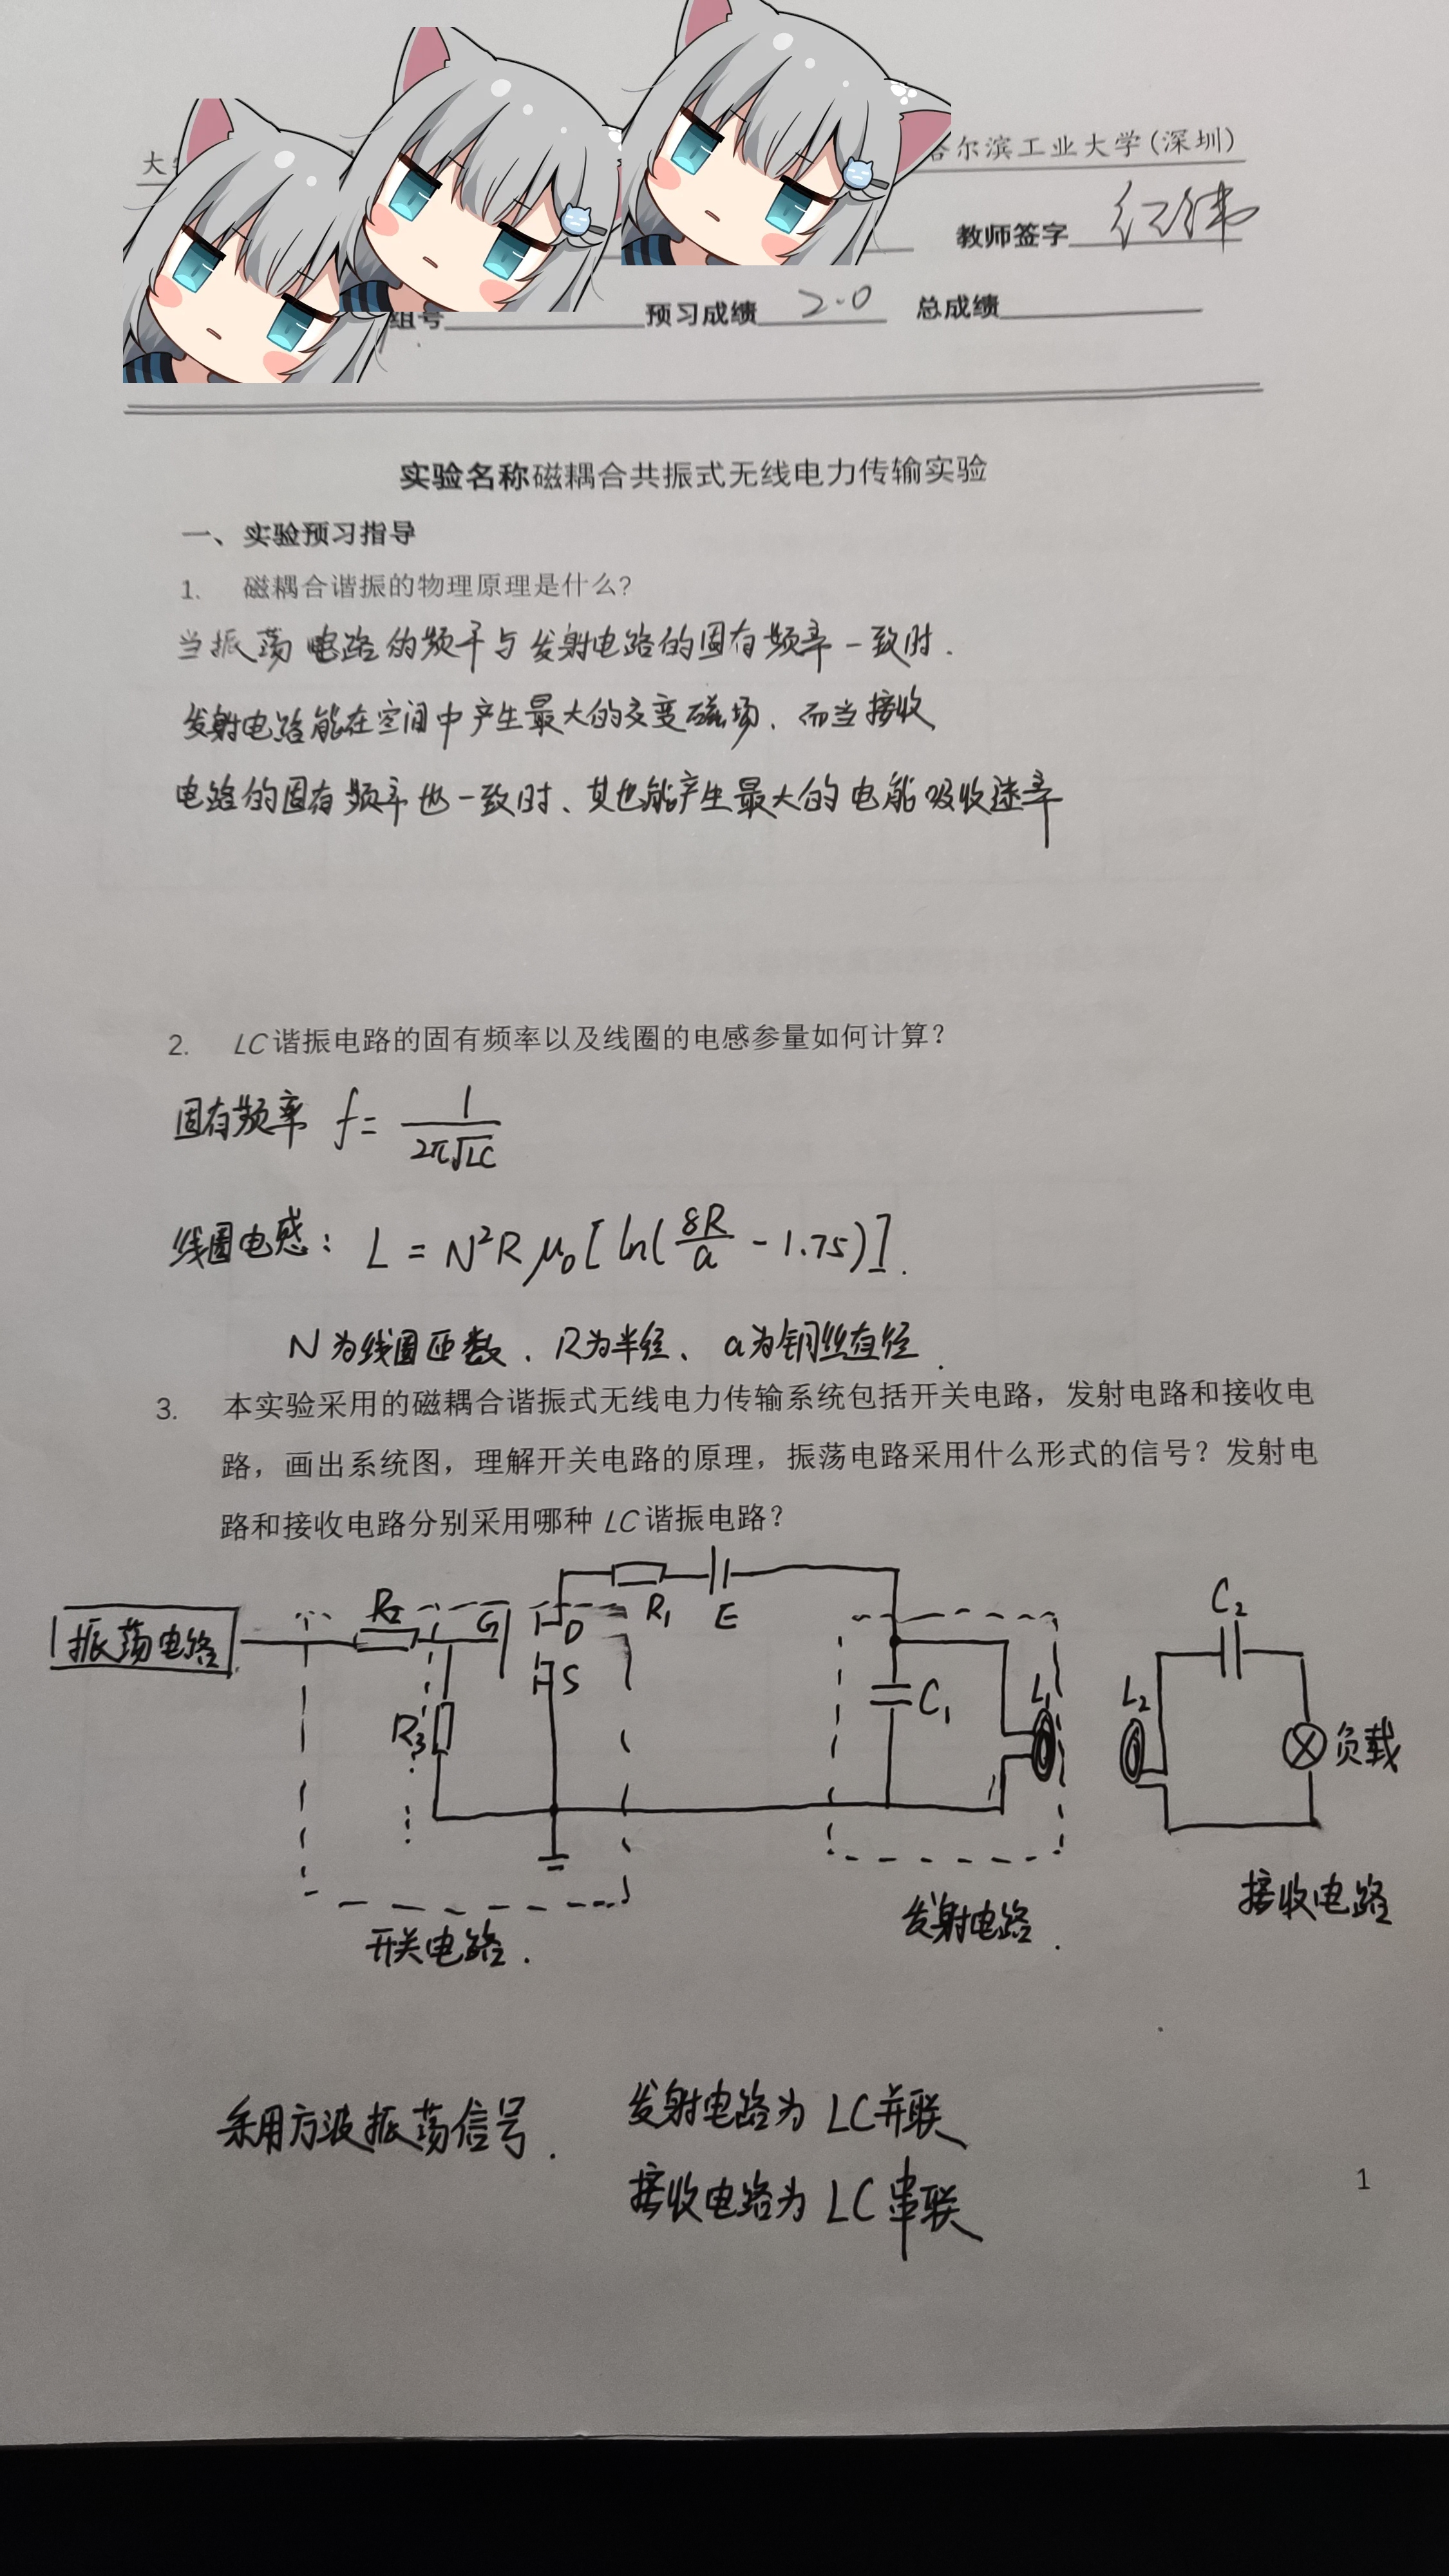 大
哈尔滨工业大学(深圳)
教师签字
组号 预习成绩 2.0 总成绩
实验名称磁耦合共振式无线电力传输实验
一、实验预习指导
1. 磁耦合谐振的物理原理是什么?
当振荡电路的频率与发射电路的固有频率一致时.
发射电路能在空间中产生最大的交变磁场、而当接收
电路的固有频率也一致时、其也能产生最大的电能吸收速率
2. LC谐振电路的固有频率以及线圈的电感参量如何计算?
固有频率 f = 1/(2π√LC)
线圈电感: L = N²Rμ₀[ln(8R/a - 1.75)].
N为线圈匝数、R为半径、a为铜丝直径.
3. 本实验采用的磁耦合谐振式无线电力传输系统包括开关电路，发射电路和接收电
路，画出系统图，理解开关电路的原理，振荡电路采用什么形式的信号？发射电
路和接收电路分别采用哪种 LC谐振电路?
振荡电路 R₂ G D S R₁ E
R₃ C₁ L₁ L₂ C₂ 负载
开关电路. 发射电路. 接收电路
采用方波振荡信号. 发射电路为 LC并联
接收电路为 LC串联
1